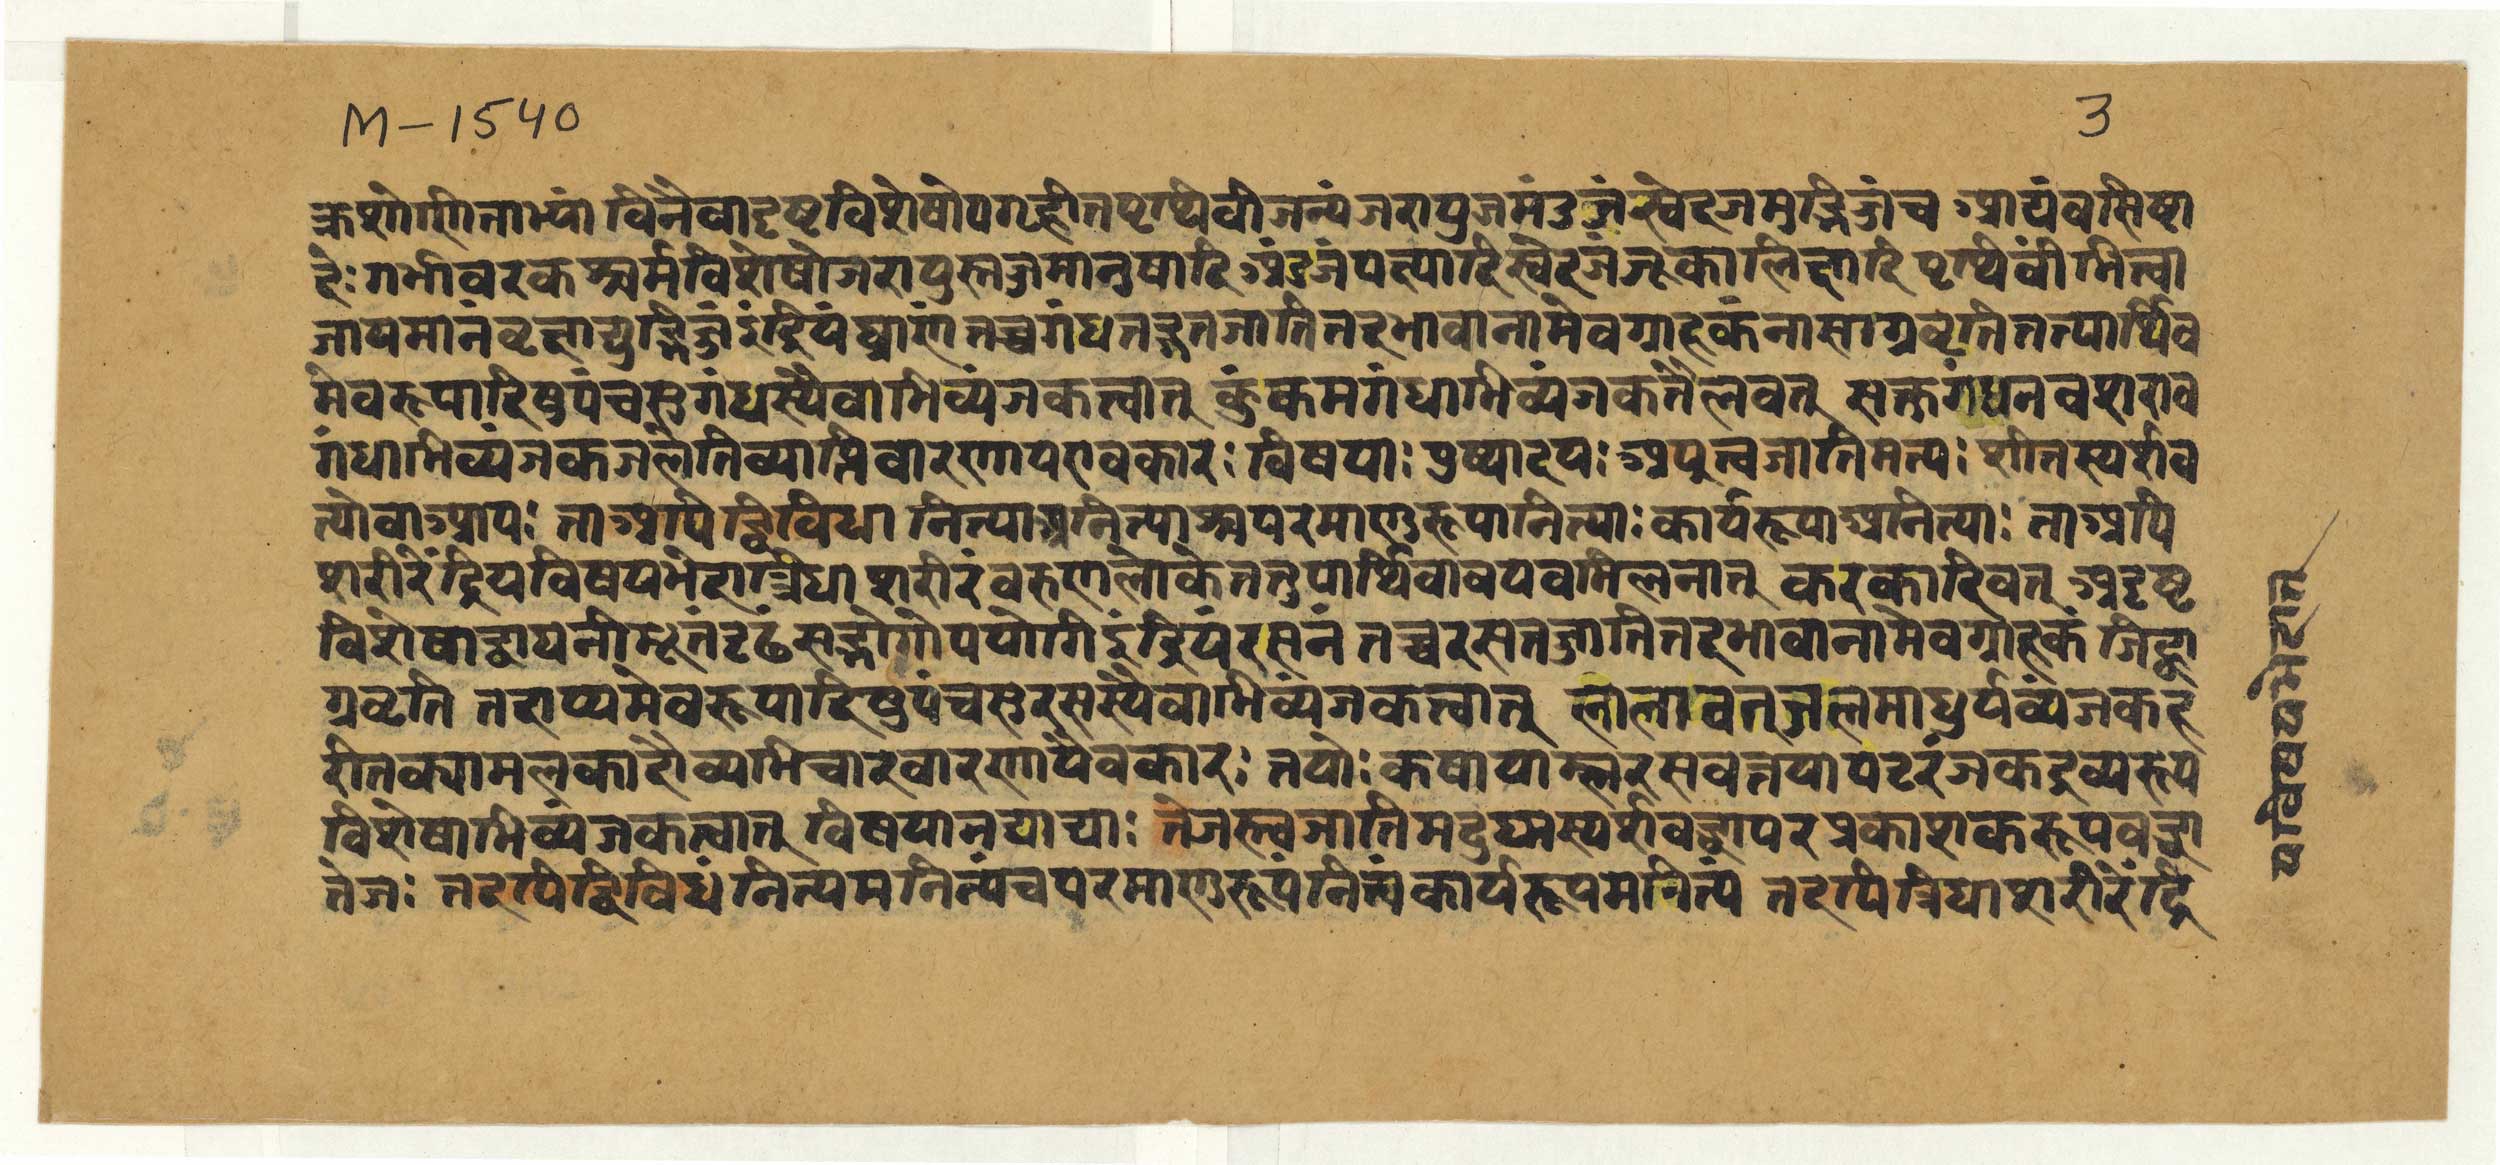 M-1540
3
क्रशोणीताभ्यां विनैवादृष्टविशेषोपगृहीतपृथिवीजन्यं जरायुजमंडजं स्वेदजमुद्भिज्जं च आद्यं वसिष्टा
देः गर्भावरकश्चर्मविशेषो जरायुस्तज्जमानुषादि अंडजं पक्ष्यादि स्वेदजं जूकालिक्षादि पृथिवीं भित्वा
जायमानं वृक्षाद्युद्भिज्जं इंद्रियं घ्राणं तच्च गंधतद्गतजातितदभावानामेव ग्राहकं नासाग्रवृति तत्पार्थिव
मेव रूपादिषु पंचसु गंधस्यैवाभिव्यंजकत्वात् कुंकमगंधाभिव्यंजकतैलवत् सक्तगंधनवशराव
गंधाभिव्यंजकजलेतिव्याप्तिवारणायएवकारः विषयाः पुष्पादयः अप्त्वजातिमत्यः शीतस्पर्शव
त्यो वा आपः ता अपि द्विविधा नित्याअनित्याश्च परमाणुरूपा नित्याः कार्यरूपाअनित्याः ता अपि
शरीरेंद्रियविषयभेदात्त्रिधा शरीरं वरुणलोके तत्तु पार्थिवावयवमिलनात् करकादिवत् अदृष्ट
विशेषाद्वा घनीभूतं दृढं सद्भोगोपयोगि इंद्रियं रसनं तच्च रसतज्जातितदभावानामेव ग्राहकं जिह्वा
ग्रवृति तदाप्यमेव रूपादिषु पंचसु रसस्यैवाभिव्यंजकत्वात् लालावत् जलमाधुर्यव्यंजकह
रीतक्यामलकादौ व्यभिचारवारणायैवकारः तयोः कषायाम्लरसवत्तया पटरंजकद्रव्यरूप
विशेषाभिव्यंजकत्वात् विषयानद्याद्याः तेजस्त्वजातिमदुष्णस्पर्शवद्वा परप्रकाशकरूपवद्वा
तेजः तदपि द्विविधं नित्यमनित्यं च परमाणुरूपं नित्यं कार्यरूपमनित्यं तदपि त्रिधा शरीरेंद्रि